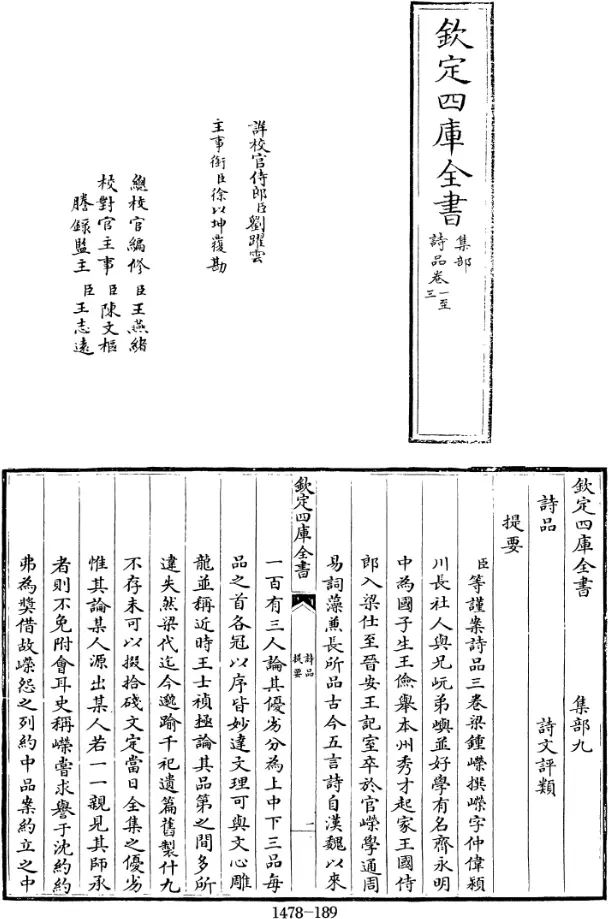 欽定四庫全書
集部
詩品卷一至三
詳校官侍郎臣劉躍雲
主事銜臣徐以坤覆勘
總校官編修臣王燕緒
校對官主事臣陳文樞
謄錄監生臣王志遠
欽定四庫全書 集部九
詩品 詩文評類
提要
臣等謹案詩品三卷梁鍾嶸撰嶸字仲偉潁
川長社人與兄岏弟嶼並好學有名齊永明
中為國子生王儉舉本州秀才起家王國侍
郎入梁仕至晉安王記室卒於官嶸學通周
易詞藻兼長所品古今五言詩自漢魏以來
欽定四庫全書
詩品
提要
一
一百有三人論其優劣分為上中下三品每
品之首各冠以序皆妙達文理可與文心雕
龍並稱近時王士禎極論其品第之間多所
違失然梁代迄今邈踰千祀遺篇舊製什九
不存未可以掇拾殘文定當日全集之優劣
惟其論某人源出某人若一一親見其師承
者則不免附會耳史稱嶸嘗求譽于沈約約
弗為奬借故嶸怨之列約中品案約立之中
1478-189